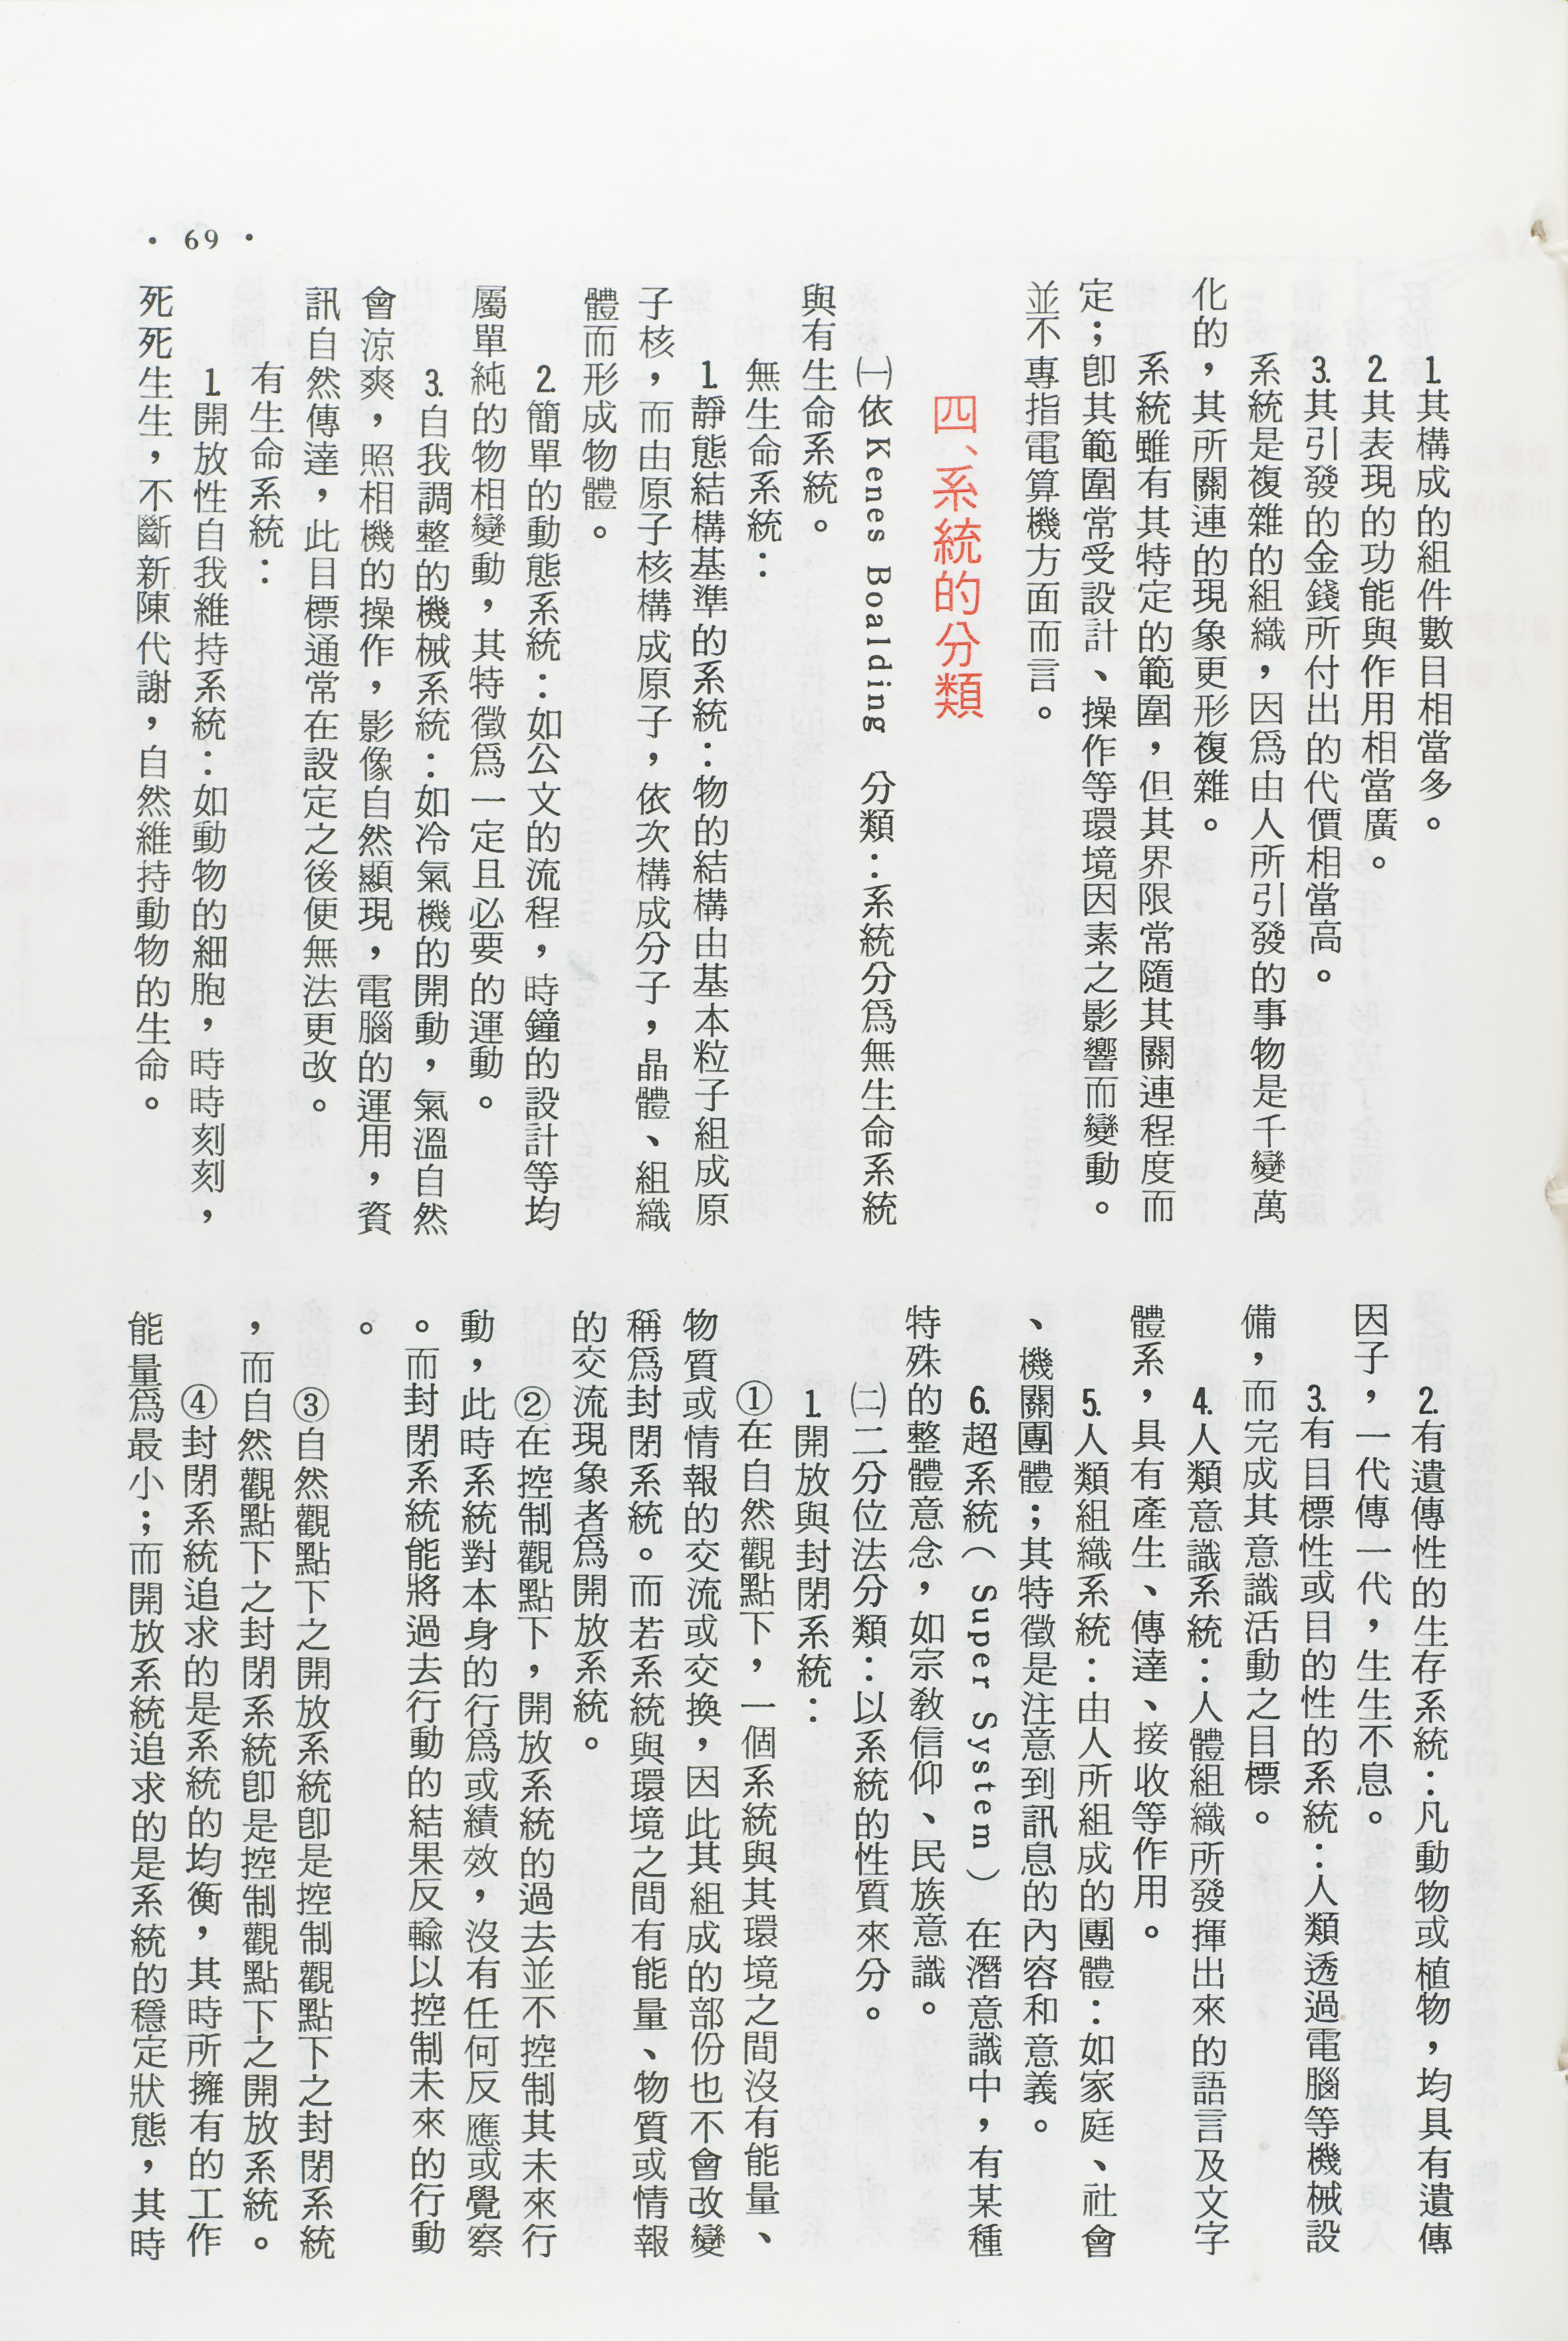 1.其構成的組件數目相當多。
2.其表現的功能與作用相當廣。
3.其引發的金錢所付出的代價相當高。
系統是複雜的組織，因爲由人所引發的事物是千變萬
化的，其所關連的現象更形複雜。
系統雖有其特定的範圍，但其界限常隨其關連程度而
定；卽其範圍常受設計、操作等環境因素之影響而變動。
並不專指電算機方面而言。
四、系統的分類
㈠依Kenes Boalding 分類：系統分爲無生命系統
與有生命系統。
無生命系統：
1.靜態結構基準的系統：物的結構由基本粒子組成原
子核，而由原子核構成原子，依次構成分子，晶體、組織
體而形成物體。
2.簡單的動態系統：如公文的流程，時鐘的設計等均
屬單純的物相變動，其特徵爲一定且必要的運動。
3.自我調整的機械系統：如冷氣機的開動，氣溫自然
會涼爽，照相機的操作，影像自然顯現，電腦的運用，資
訊自然傳達，此目標通常在設定之後便無法更改。
有生命系統：
1.開放性自我維持系統：如動物的細胞，時時刻刻，
死死生生，不斷新陳代謝，自然維持動物的生命。
• 69 •
2.有遺傳性的生存系統：凡動物或植物，均具有遺傳
因子，一代傳一代，生生不息。
3.有目標性或目的性的系統：人類透過電腦等機械設
備，而完成其意識活動之目標。
4.人類意識系統：人體組織所發揮出來的語言及文字
體系，具有產生、傳達、接收等作用。
5.人類組織系統：由人所組成的團體：如家庭、社會
、機關團體；其特徵是注意到訊息的內容和意義。
6.超系統（Super System）在潛意識中，有某種
特殊的整體意念，如宗教信仰、民族意識。
㈡二分位法分類：以系統的性質來分。
1.開放與封閉系統：
①在自然觀點下，一個系統與其環境之間沒有能量、
物質或情報的交流或交換，因此其組成的部份也不會改變
稱爲封閉系統。而若系統與環境之間有能量、物質或情報
的交流現象者爲開放系統。
②在控制觀點下，開放系統的過去並不控制其未來行
動，此時系統對本身的行爲或績效，沒有任何反應或覺察
。而封閉系統能將過去行動的結果反輸以控制未來的行動
。
③自然觀點下之開放系統卽是控制觀點下之封閉系統
，而自然觀點下之封閉系統卽是控制觀點下之開放系統。
④封閉系統追求的是系統的均衡，其時所擁有的工作
能量爲最小；而開放系統追求的是系統的穩定狀態，其時